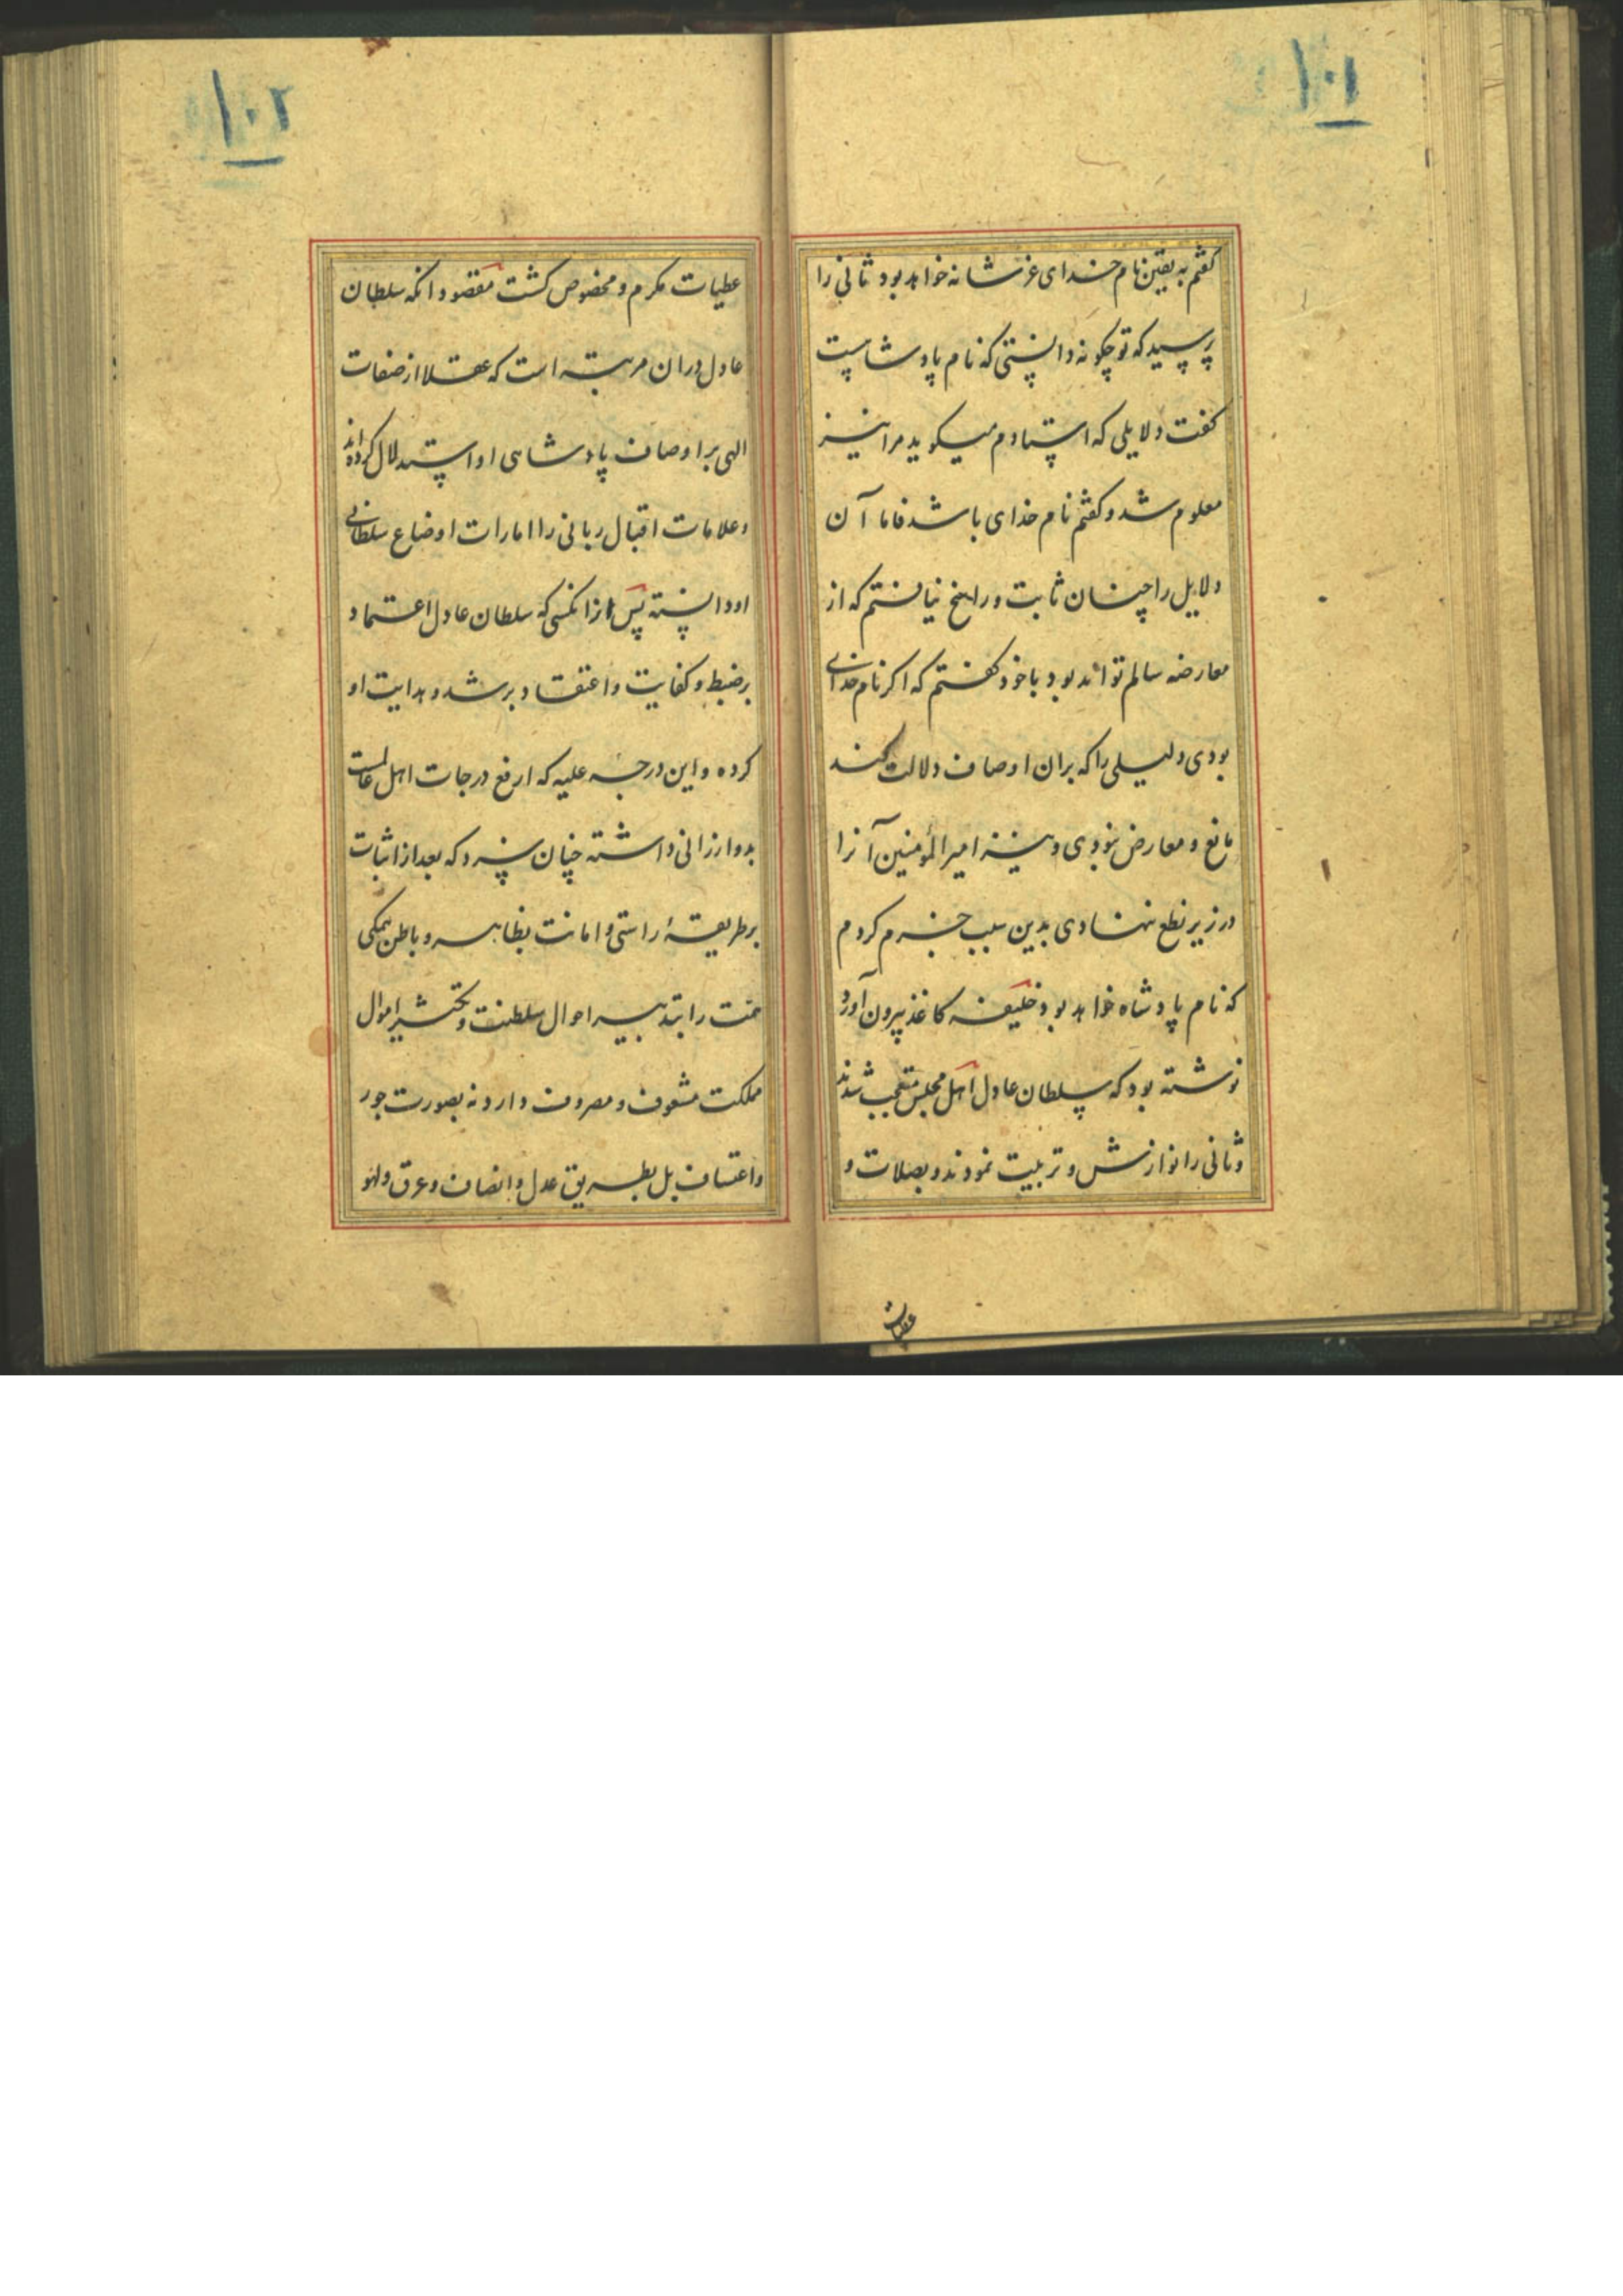 ۱۰۱
کفتم به یقین نام خدای عزشانه خواهد بود ثانی را
پرسید که تو چکونه دانستی که نام پادشاست
کفت دلایلی که استادم میکوید مرا نیز
معلوم شد و کفتم نام خدای باشد فاما آن
دلایل را چنان ثابت و راسخ نیافتم که از
معارضه سالم تواند بود با خود کفتم که اکر نام خدای
بودی دلیلی را که بران اوصاف دلالت کند
مانع و معارض نبودی و نیز امیر المؤمنین آنرا
در زیر نطع ننهادی بدین سبب جزم کردم
که نام پادشاه خواهد بود خلیفه کاغذ بیرون آورد
نوشته بود که سلطان عادل اهل مجلس متعجب شدند
و ثانی را نوازش و تربیت نمودند و بصلات و
عطیات
۱۰۲
عطیات مکرم و مخصوص کشت مقصود انکه سلطان
عادل دران مرتبه است که عقلا از صفات
الهی بر اوصاف پادشاهی او استدلال کرده‌اند
و علامات اقبال ربانی را امارات اوضاع سلطانی
او دانسته پس از انکسی که سلطان عادل اعتماد
بر ضبط و کفایت و اعتقاد بر رشد و هدایت او
کرده و این درجه علیه که ارفع درجات اهل عالمست
بدو ارزانی داشته چنان سزد که بعد از اثبات
بر طریقهٔ راستی و امانت بظاهر و باطن همکی
همت را بتدبیر احوال سلطنت و تکثیر اموال
مملکت مشعوف و مصروف دارد نه بصورت جور
و اعتساف بل بطریق عدل و انصاف و عرق و لهو